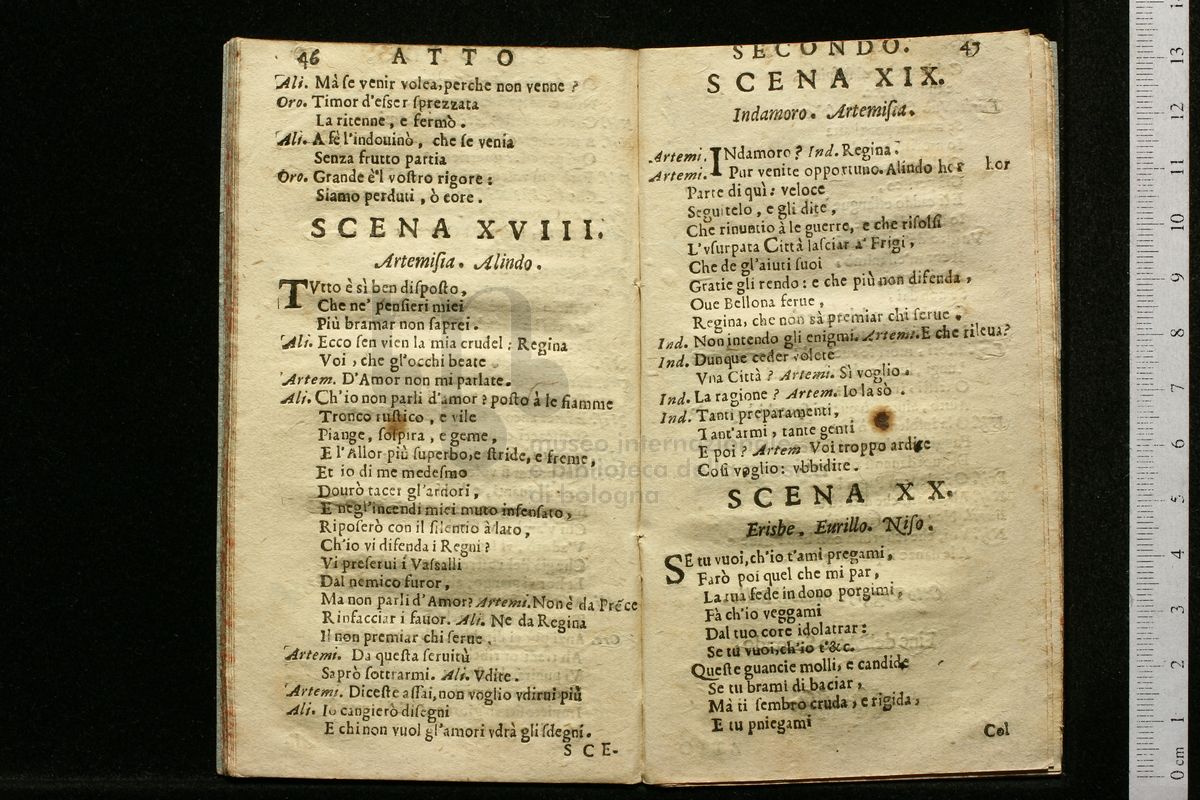 46 ATTO
Ali. Mà se venir volea, perche non venne ?
Oro. Timor d'esser sprezzata
La ritenne, e fermò.
Ali. A fè l'indouinò, che se venia
Senza frutto partia
Oro. Grande è'l vostro rigore :
Siamo perduti, ò core.
SCENA XVIII.
Artemisia. Alindo.
TVtto è sì ben disposto,
Che ne' pensieri miei
Più bramar non saprei.
Ali. Ecco sen vien la mia crudel : Regina
Voi, che gl'occhi beate
Artem. D'Amor non mi parlate.
Ali. Ch'io non parli d'amor ? posto à le fiamme
Tronco rustico, e vile
Piange, sospira, e geme,
E l'Allor più superbo, e stride, e freme,
Et io di me medesmo
Dourò tacer gl'ardori,
E negl'incendi miei muto insensato,
Riposerò con il silentio à lato,
Ch'io vi difenda i Regni ?
Vi preserui i Vassalli
Dal nemico furor,
Ma non parli d'Amor? Artemi. Non è da Préce
Rinfacciar i fauor. Ali. Ne da Regina
Il non premiar chi serue.
Artemi. Da questa seruitù
Saprò sottrarmi. Ali. Vdite.
Artemi. Diceste assai, non voglio vdirui più
Ali. Io cangierò disegni
E chi non vuol gl'amori vdrà gli sdegni.
SCE-
SECONDO. 45
SCENA XIX.
Indamoro. Artemisia.
Artemi. INdamoro ? Ind. Regina.
Artemi. Pur venite opportuno. Alindo hor hor
Parte di quì : veloce
Seguitelo, e gli dite,
Che rinuntio à le guerre, e che risolsi
L'vsurpata Città lasciar a' Frigi,
Che de gl'aiuti suoi
Gratie gli rendo : e che più non difenda,
Oue Bellona ferue,
Regina, che non sà premiar chi serue.
Ind. Non intendo gli enigmi. Artemi. E che rileua?
Ind. Dunque ceder volete
Vna Città ? Artemi. Sì voglio.
Ind. La ragione ? Artem. Io la sò .
Ind. Tanti preparamenti,
Tant'armi, tante genti
E poi ? Artem Voi troppo ardite
Così voglio : vbbidite.
SCENA XX.
Erisbe, Eurillo. Niso.
SE tu vuoi, ch'io t'ami pregami,
Farò poi quel che mi par,
La tua fede in dono porgimi,
Fà ch'io veggami
Dal tuo core idolatrar :
Se tu vuoi, ch'io t'&c.
Queste guancie molli, e candide
Se tu brami di baciar,
Mà ti sembro cruda, e rigida,
E tu pniegami
Col
museo internazionale
e biblioteca della musica
di bologna